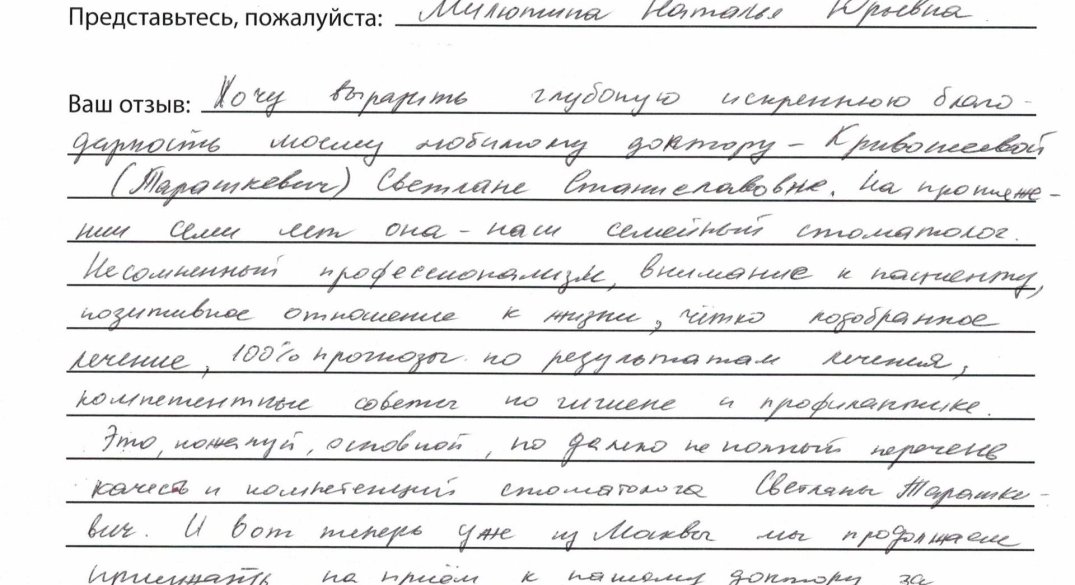 Представьтесь, пожалуйста: Милютина Наталья Юрьевна
Ваш отзыв: Хочу выразить глубокую искреннюю благо-
дарность моему любимому доктору - Кривошеевой
(Тарашкевич) Светлане Станиславовне. На протяже-
нии семи лет она - наш семейный стоматолог.
Несомненный профессионализм, внимание к пациенту,
позитивное отношение к жизни, чётко подобранное
лечение, 100% прогнозы по результатам лечения,
компетентные советы по гигиене и профилактике.
Это, пожалуй, основной, но далеко не полный перечень
качеств и компетенций стоматолога Светланы Тарашке-
вич. И вот теперь уже из Москвы мы продолжаем
приезжать на приём к нашему доктору за